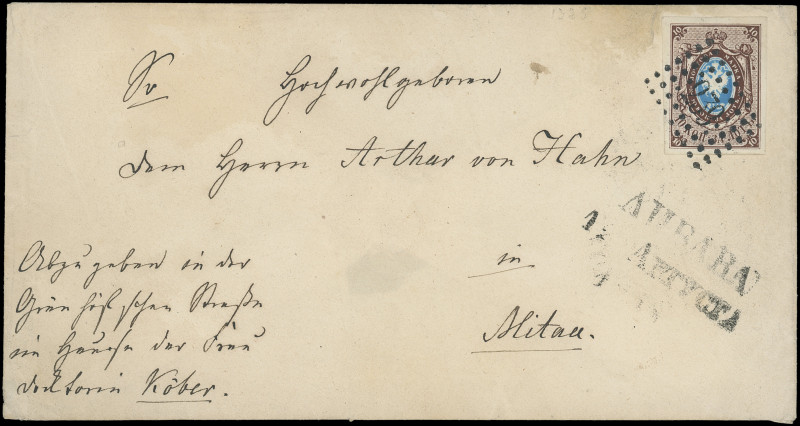 Sr Hochwohlgeboren
dem Herrn Arthur von Hahn
in
Mitau.
Abzugeben in der
Grünhöfschen Straße
im Hause der Frau
Doktorin Köber.
ЛИБАВА
АВГУСТА
10 10
10 10